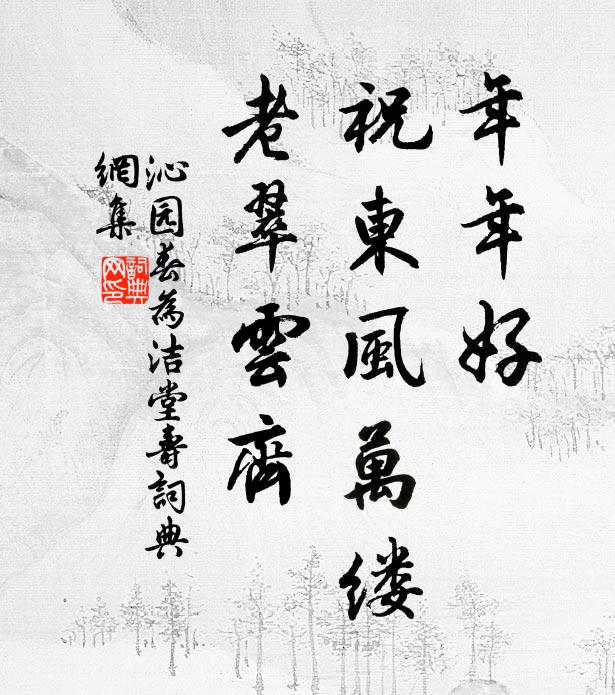 年年好
祝東風萬缕
老翠雲齊
沁园春為洁堂壽詞典
網集
詞典
网印